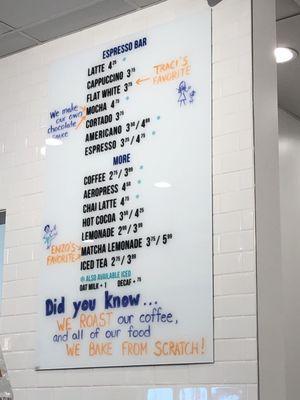 ESPRESSO BAR
LATTE 4.25
CAPPUCCINO 3.75
FLAT WHITE 3.75
MOCHA 4.75
CORTADO 3.75
AMERICANO 3.50/4.00
ESPRESSO 3.25/4.75
TRACI'S
FAVORITE
We make
our own
chocolate
sauce
MORE
COFFEE 2.75/3.00
AEROPRESS 4.50
CHAI LATTE 4.75
HOT COCOA 3.50/4.25
LEMONADE 2.00/3.00
MATCHA LEMONADE 3.75/5.00
ICED TEA 2.75/3.00
ENZO'S
FAVORITE
ALSO AVAILABLE ICED
OAT MILK + 1 DECAF + .75
Did you know...
WE ROAST our coffee,
and all of our food
WE BAKE FROM SCRATCH!